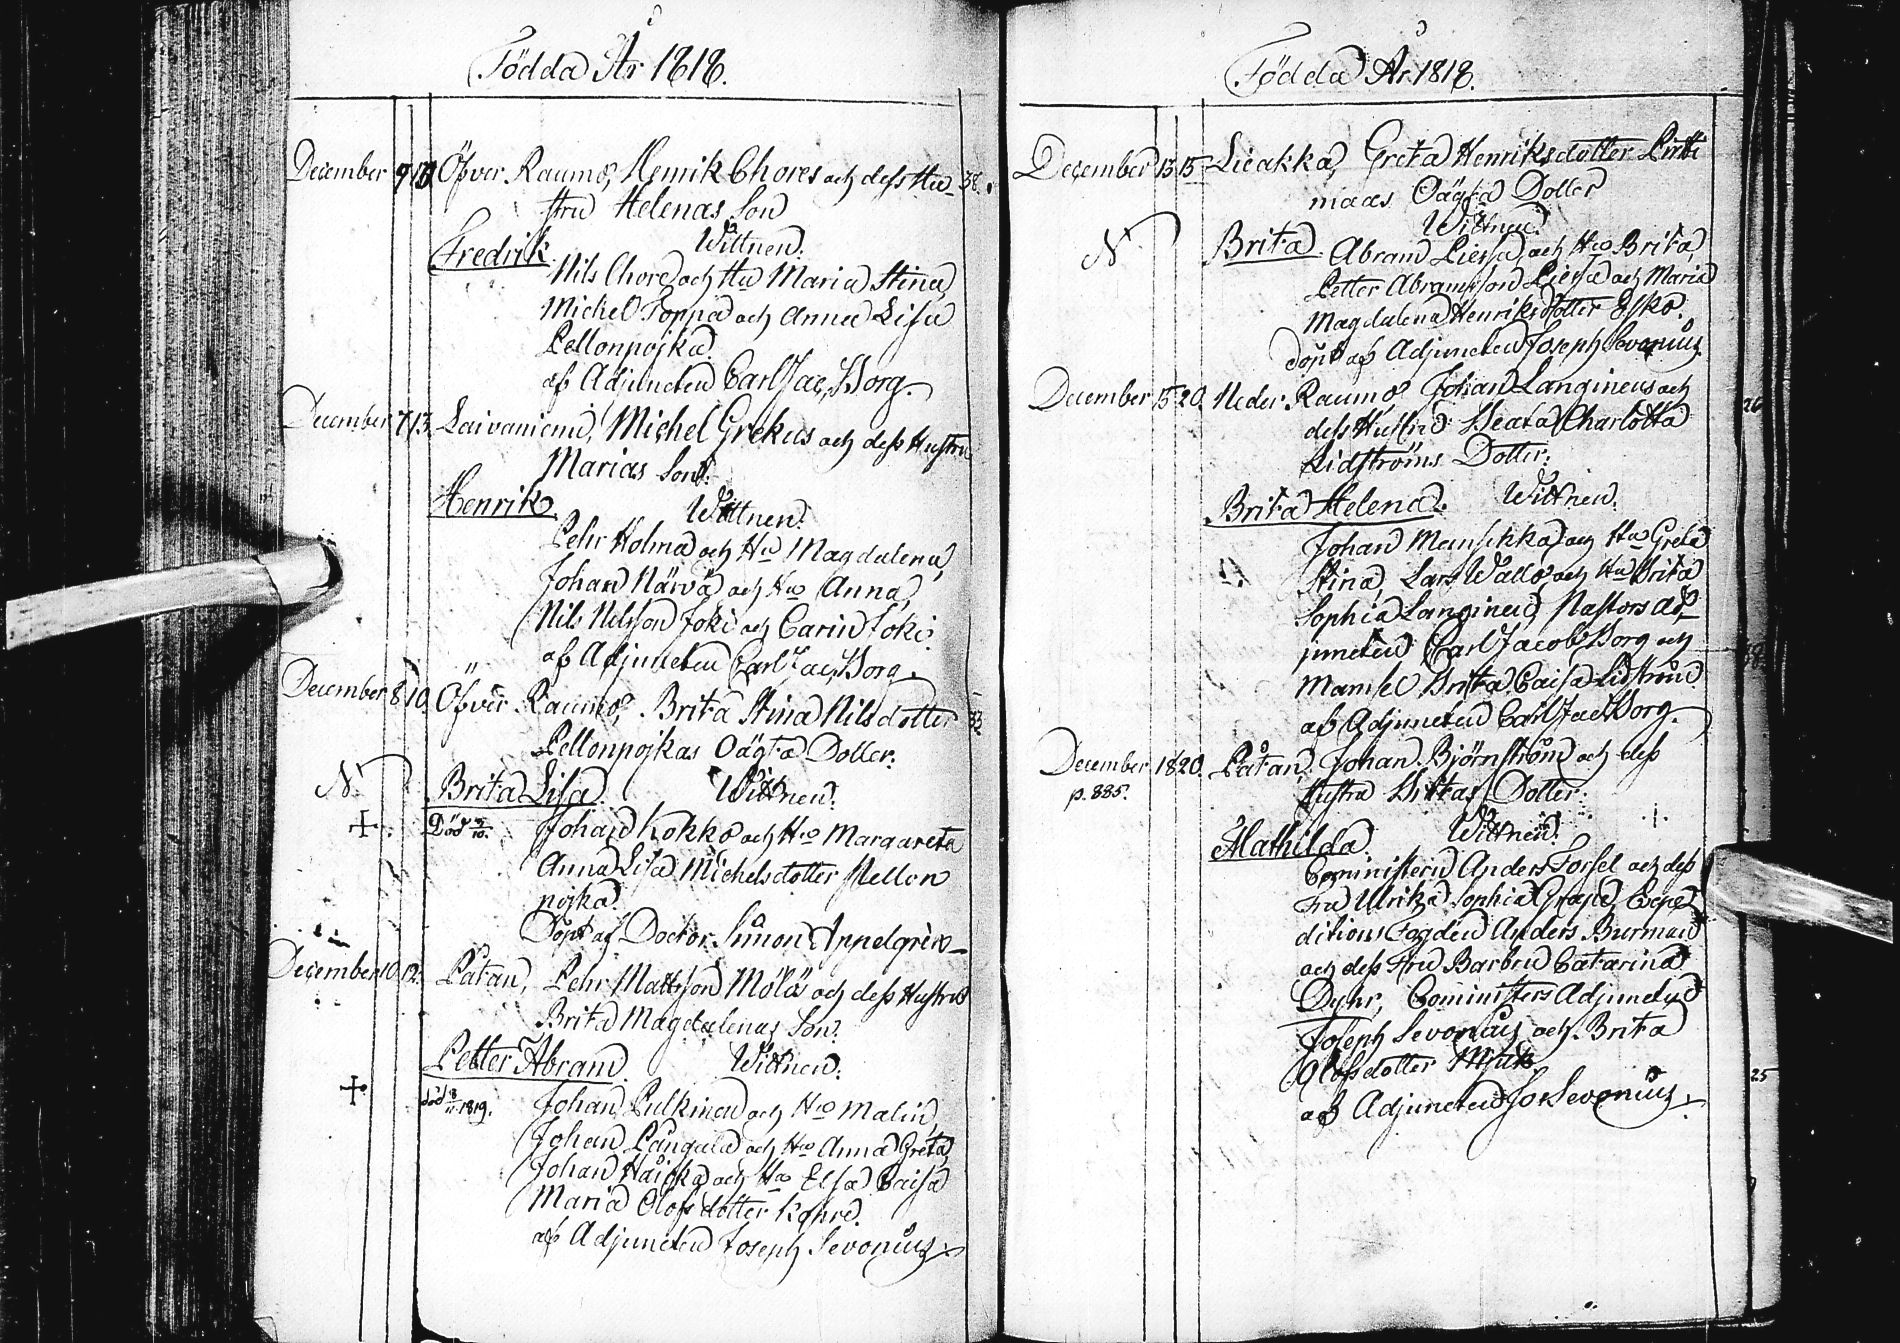 Födda År 1818.
December 9 13 Öfver Raumo, Henrik Chores och dess Hu- 38.
stru Helenas Son
Fredrik. Wittnen:
Nils Chore och Hu Maria Stina,
Michel Toppa och Anna Lisa
Pellonpojka.
af Adjuncten Carl Jac. Borg.
December 7 13. Laivaniemi, Michel Grekus och dess Hustru
Marias Son:
Henrik Wittnen:
Pehr Holma och Hu Magdalena,
Johan Närvä och Hu Anna,
Nils Nilsson Joki och Carin Joki.
af Adjuncten Carl Jac. Borg.
December 8 10. Öfver Raumo, Brita Stina Nilsdotter 33
Pellonpojkas Oägta Dotter:
N. Brita Lisa Wittnen:
Död Johan Kokko och Hu Margareta
Anna Lisa Michelsdotter Pellon
pojka.
Döpt af Doctor Simon Appelgren
December 10 12. Påtan, Pehr Mattsson Mölös och dess Hustru
Brita Magdalenas Son:
Petter Abram. Wittnen:
död 1819. Johan Pulkinen och Hu Malin,
Johan Långula och Hu Anna Greta,
Johan och Hu Elsa Caisa
Maria Olofsdotter
af Adjuncten Joseph Sevonius
Födda År 1818.
December 13 15 Lieakka, Greta Henriksdotter
maas Oägta Dotter
Wittnen:
N. Brita Abram Liessa, och Hu Brita,
Petter Abramsson Liessa och Maria
Magdalena Henriksdotter Esko.
döpt af Adjuncten Joseph Sevonius
December 15 20. Neder Raumo Johan Langineus och 26
dess Hustru Beata Charlotta
Lidströms Dotter:
Brita Helena. Wittnen:
Johan Mansikka och Hu Greta
Stina, Lars Wallo och Hu Brita
Sophia Langineus, Pastors ad-
juncten Carl Jacob Borg och
Mamsel Brita Caisa Lidström
af Adjuncten Carl Jac. Borg.
December 18 20. Påtan, Johan Björnström och dess
p. 885. Hustru Dotter:
Mathilda. Wittnen:
Cominister Anders Forsel och dess
Fru Ulrika Sophia Grape, Expe
ditions Fogden Anders Burman
och dess Fru Barbru Catarina
Dyhr, Coministers Adjuncten
Joseph Sevonius och Brita
Olofsdotter
25
af Adjuncten Jos Sevonius